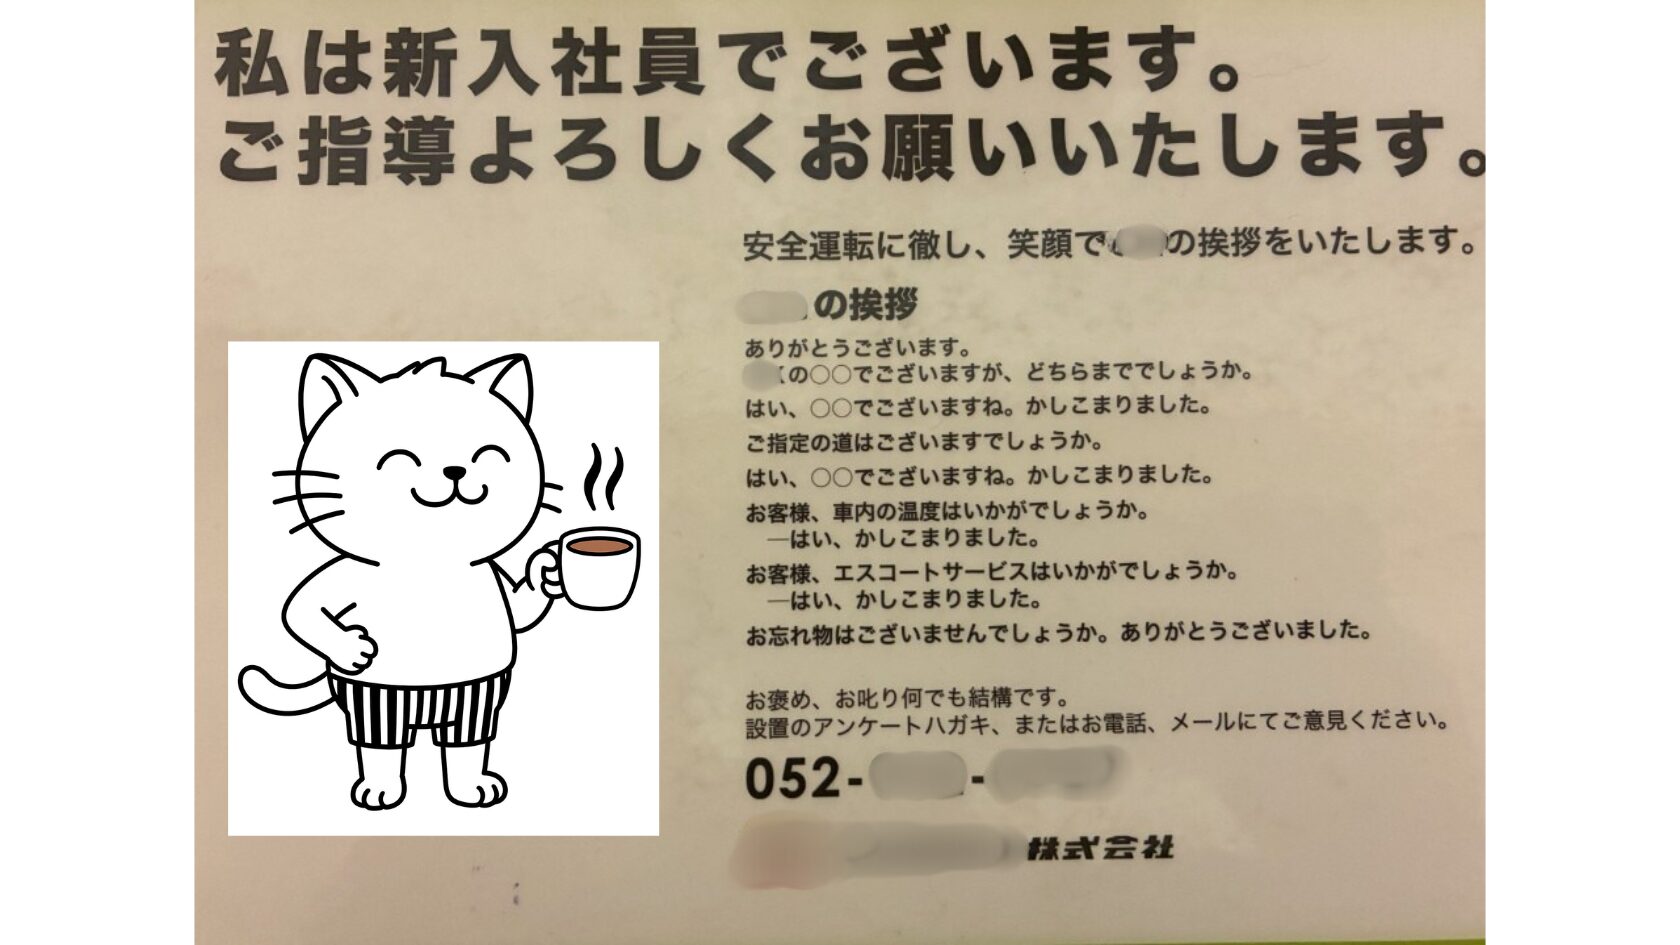 私は新入社員でございます。
ご指導よろしくお願いいたします。
安全運転に徹し、笑顔で の挨拶をいたします。
の挨拶
ありがとうございます。
くの○○でございますが、どちらまででしょうか。
はい、○○でございますね。かしこまりました。
ご指定の道はございますでしょうか。
はい、○○でございますね。かしこまりました。
お客様、車内の温度はいかがでしょうか。
―はい、かしこまりました。
お客様、エスコートサービスはいかがでしょうか。
―はい、かしこまりました。
お忘れ物はございませんでしょうか。ありがとうございました。
お褒め、お叱り何でも結構です。
設置のアンケートハガキ、またはお電話、メールにてご意見ください。
052- -
株式会社